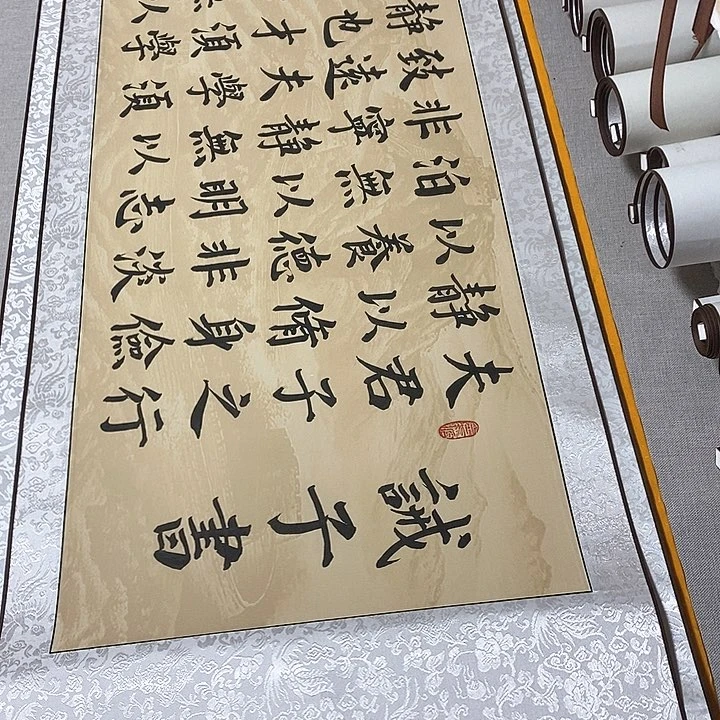 誡子書
夫君子之行
靜以脩身儉
以養德非淡
泊無以明志
非寧靜無以
致遠夫學須
靜也才須學
無以